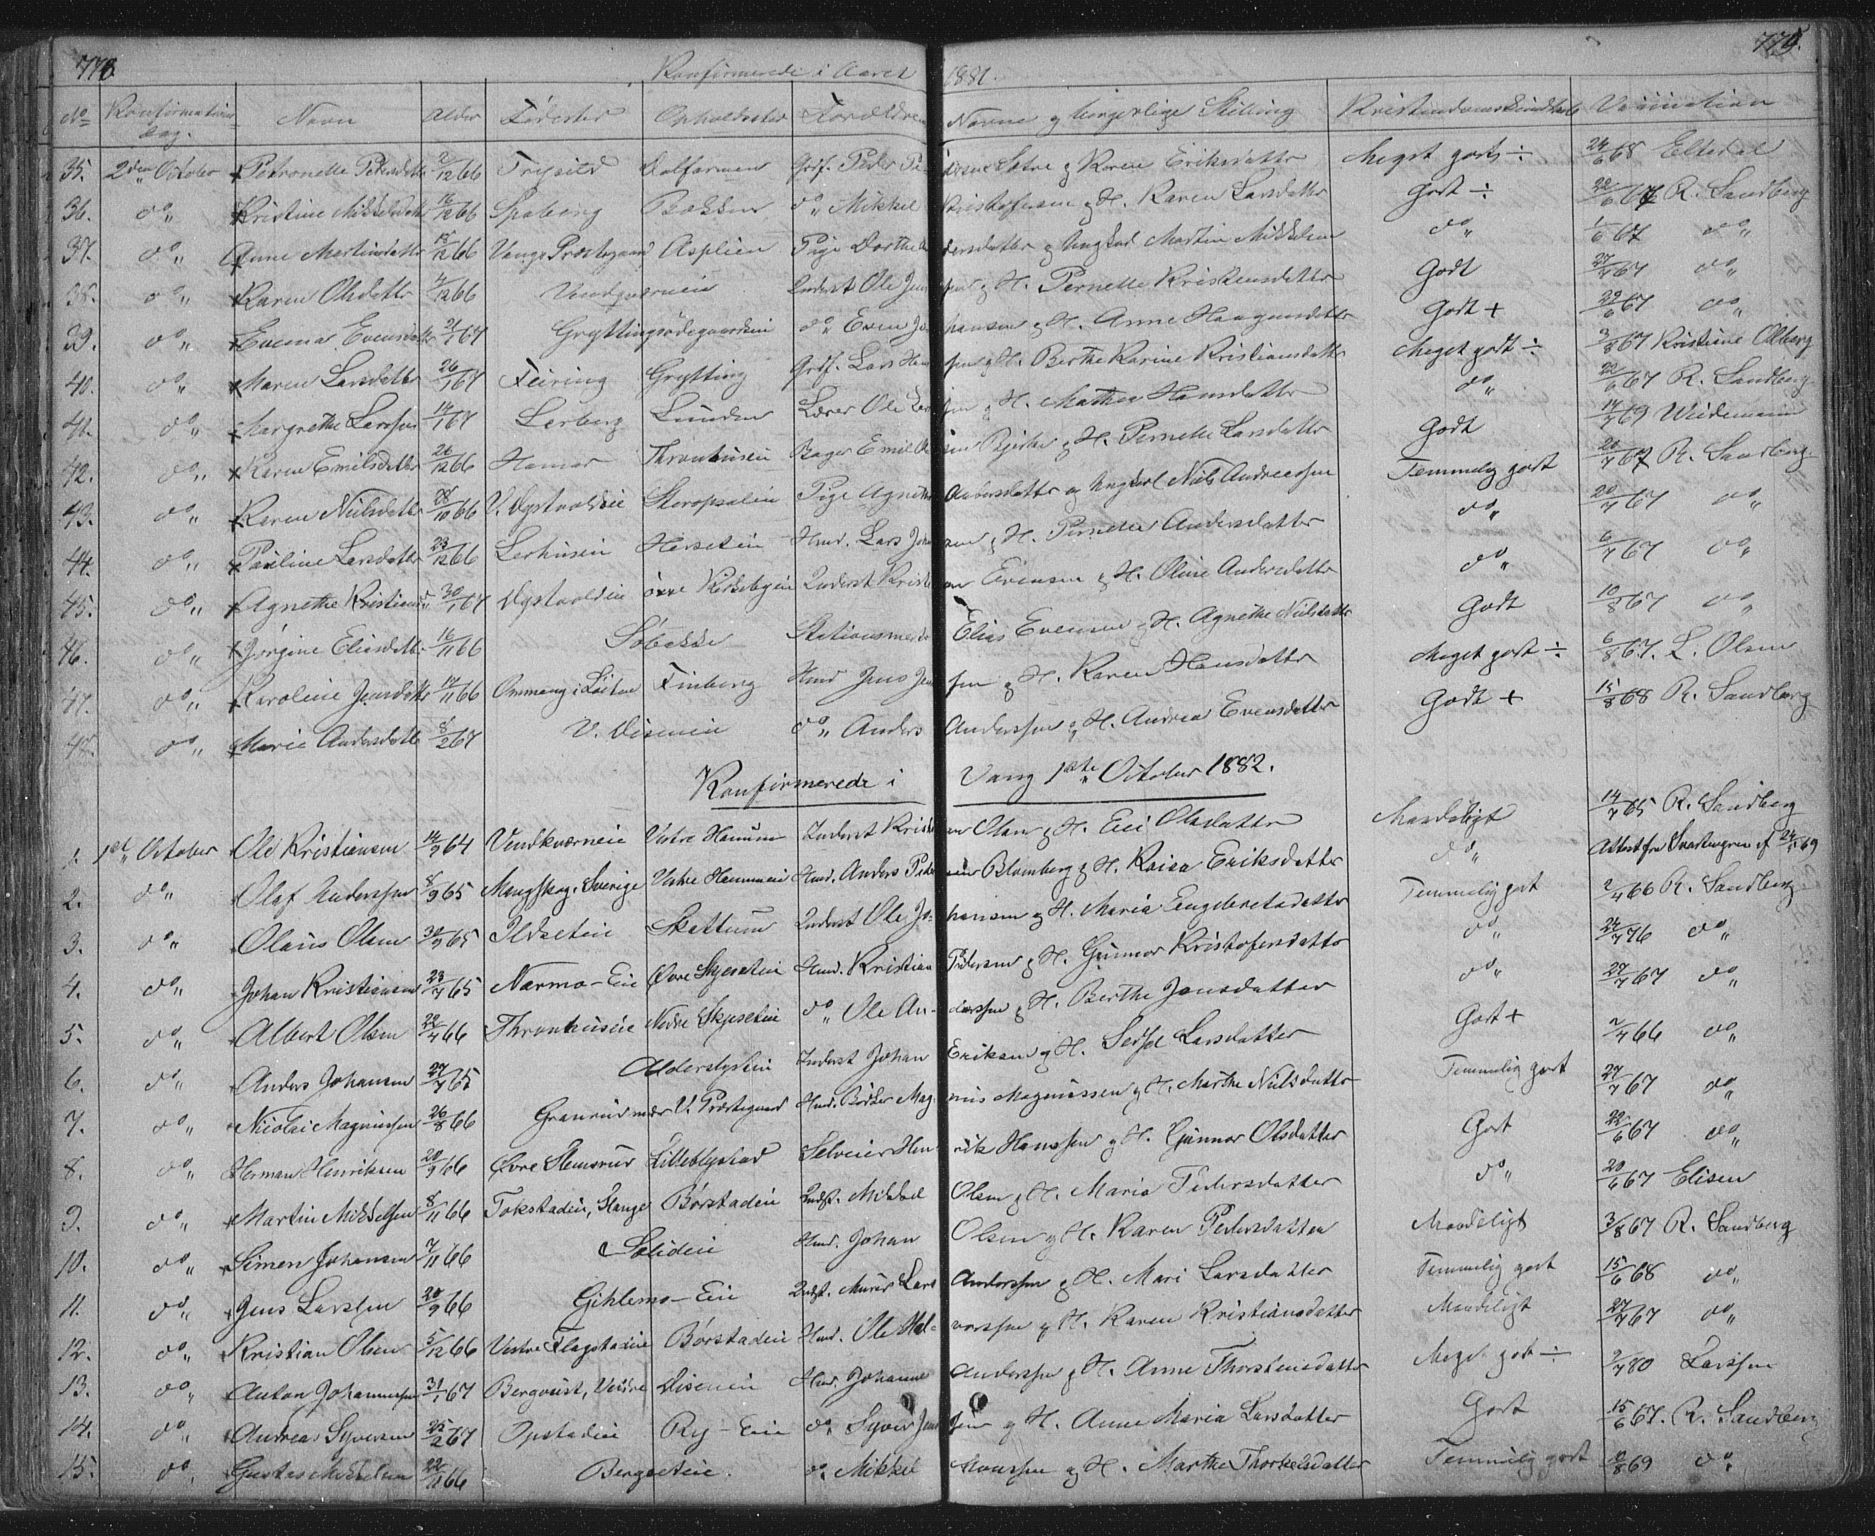 778. 779.
Konfirmerede i Aaret 1881.
No Konfirmations Dag. Navn Alder Fødested Opholdssted Forældrenes Navne og borgerlige Stilling Kristendomskundskab Vaccination
35. 2den October Petronelle Pedersdatter 2/12 66 Trysild Dalfarmen Grdf. Peder Pedersen Sætre og Karen Eriksdatter Meget godt ÷ 24/6 68 Elterdal
36. do Kristine Mikkelsdatter 12/12 66 Spaberg Bakken do Mikkel Kristofersen og H. Karen Larsdatter Godt ÷ 22/6 67 R. Sandberg
37. do Anne Martinsdatter 15/12 66 Vangs Prestegaard Asplien Pige Dorthe og Ungkarl Martin Mikkelsen do 1/6 67 do
38. do Karen Olsdatter 4/12 66 Vendqværneie Inderst Ole Jensen og H. Pernelle Kristensdatter Godt 27/7 67 do
39. do Evensdatter 21/1 67 Gryttingsødegaardseie do Even Johansen og H. Anne Haagensdatter Godt + 29/6 67 do
40. do Maren Larsdatter 26/1 67 Feiring Grytting Grdf. Lars Hansen og H. Berthe Karine Kristiansdatter Meget godt ÷ 3/8 67 Kristine Olberg
41. do Margrethe Larssen 14/1 67 Lerberg Lunden Lærer Ole Larssen og H. Mathea Hansdatter do 22/6 67 R. Sandberg
42. do Karen Emilsdatter 26/12 66 Hamar Thronhuseie Bager Emil Bjerke og H. Pernelle Larsdatter Godt 14/7 69 Wiedemann
43. do Karen Nielsdatter 28/10 66 V. Dystvoldeie Skoropseie Pige Agnethe og Ungkarl Niels Andreassen Temmelig godt 20/7 67 R. Sandberg
44. do Pauline Larsdatter 23/12 66 Lerhuseie Herseteie Hmd. Lars Johansen og H. Pernelle Andersdatter do 20/7 67 do
45. do Agnethe Kristiansd. 30/1 67 Dystvoldeie øvre Kirkebyeie Inderst Kristian Evensen og H. Oline Andersdatter do 6/7 67 do
46. do Jørgine Eliasdatter 16/11 66 Søbakke Stationsmester Elias Evensen og H. Agnethe Nielsdatter Godt 10/8 67 do
47. do Karoline Jensdatter 14/11 66 Ommang i Løiten Finberg Hmd Jens Jensen og H. Karen Hansdatter Meget godt ÷ 6/8 67. L. Olsen
48. do Marie Andersdatter 8/2 67 V. Diseneie do Anders Anderssen og H. Andrea Evensdatter Godt + 15/8 68 R. Sandberg
Konfirmerede i Vang 1ste October 1882.
1. 1ste October Ole Kristiansen 14/9 64 Vendkværneie Vestre Hommen Inderst Kristian Olsen og H. Eli Olsdatter Maadeligt 14/7 65 R. Sandberg
2. do Olaf Anderssen 8/9 65 Mangskog, Sverige Vestre Hommeneie Hmd. Anders Blomberg og H. Kaisa Eriksdatter do Attest fra Svartengren af 24/5 69
3. do Olaus Olsen 30/9 65 Ildseteie Skattum Inderst Ole Johansen og H. Maria Engebretsdatter Temmelig godt 2/7 66 R. Sandberg
4. do Johan Kristiansen 23/7 65 Narmo-Eie Øvre Skjeseteie Hmd. Kristian Pedersen og H. Gunnor Kristofersdatter do 24/7 76 do
5. do Albert Olsen 22/4 66 Thronhuseie Nedre Skjeseteie do Ole Anderssen og H. Berthe Jensdatter do 27/7 67 do
6. do Anders Johansen 27/7 65 Alderslysteie Inderst Johan Eriksen og H. Larsdatter Godt + 2/7 66 do
7. do Nicolai Magnussen 26/8 66 Granerud nær V. Prestegaard Hmd. Bødker Magnus Magnussen og H. Marthe Nielsdatter Temmelig godt 27/7 67 do
8. do Herman Henriksen 20/9 66 Øvre Stensrud Lilleblystad Selveier Henrik Hanssen og H. Gunnor Olsdatter Godt 22/6 67 do
9. do Martin Mikkelsen 8/11 66 Tokstadeie, Stange Børstadeie Indst. Mikkel Olsen og H. Maria Pedersdatter do 20/6 67 Elisen
10. do Simen Johansen 7/11 66 Solideie Hmd. Johan Olsen og H. Karen Pedersdatter Maadeligt 3/8 67 R. Sandberg
11. do Jens Larssen 20/9 66 Gihlemo-Eie Indst. Murer Lars Anderssen og H. Mari Larsdatter Temmelig godt 15/6 68 do
12. do Kristian Olsen 5/12 66 Vestre Flagstadeie Børstadeie Hmd. Ole Halvorssen og H. Karen Kristiansdatter Maadeligt 27/7 67 do
13. do Anton Johannessen 31/1 67 Bergqvist, Vestre Diseneie Hmd. Johannes Anderssen og H. Anne Thorstensdatter Meget godt ÷ 2/7 80 Larssen
14. do Andreas Syversen 25/2 67 Opstadeie Ry-Eie do Syver Jenssen og H. Anne Maria Larsdatter Godt 15/6 67. R. Sandberg
15. do Gustav Mikkelsen 22/11 66 Bergseteie. do Mikkel Monssen og H. Marthe Thorkelsdatter Temmelig godt 10/8 69 do